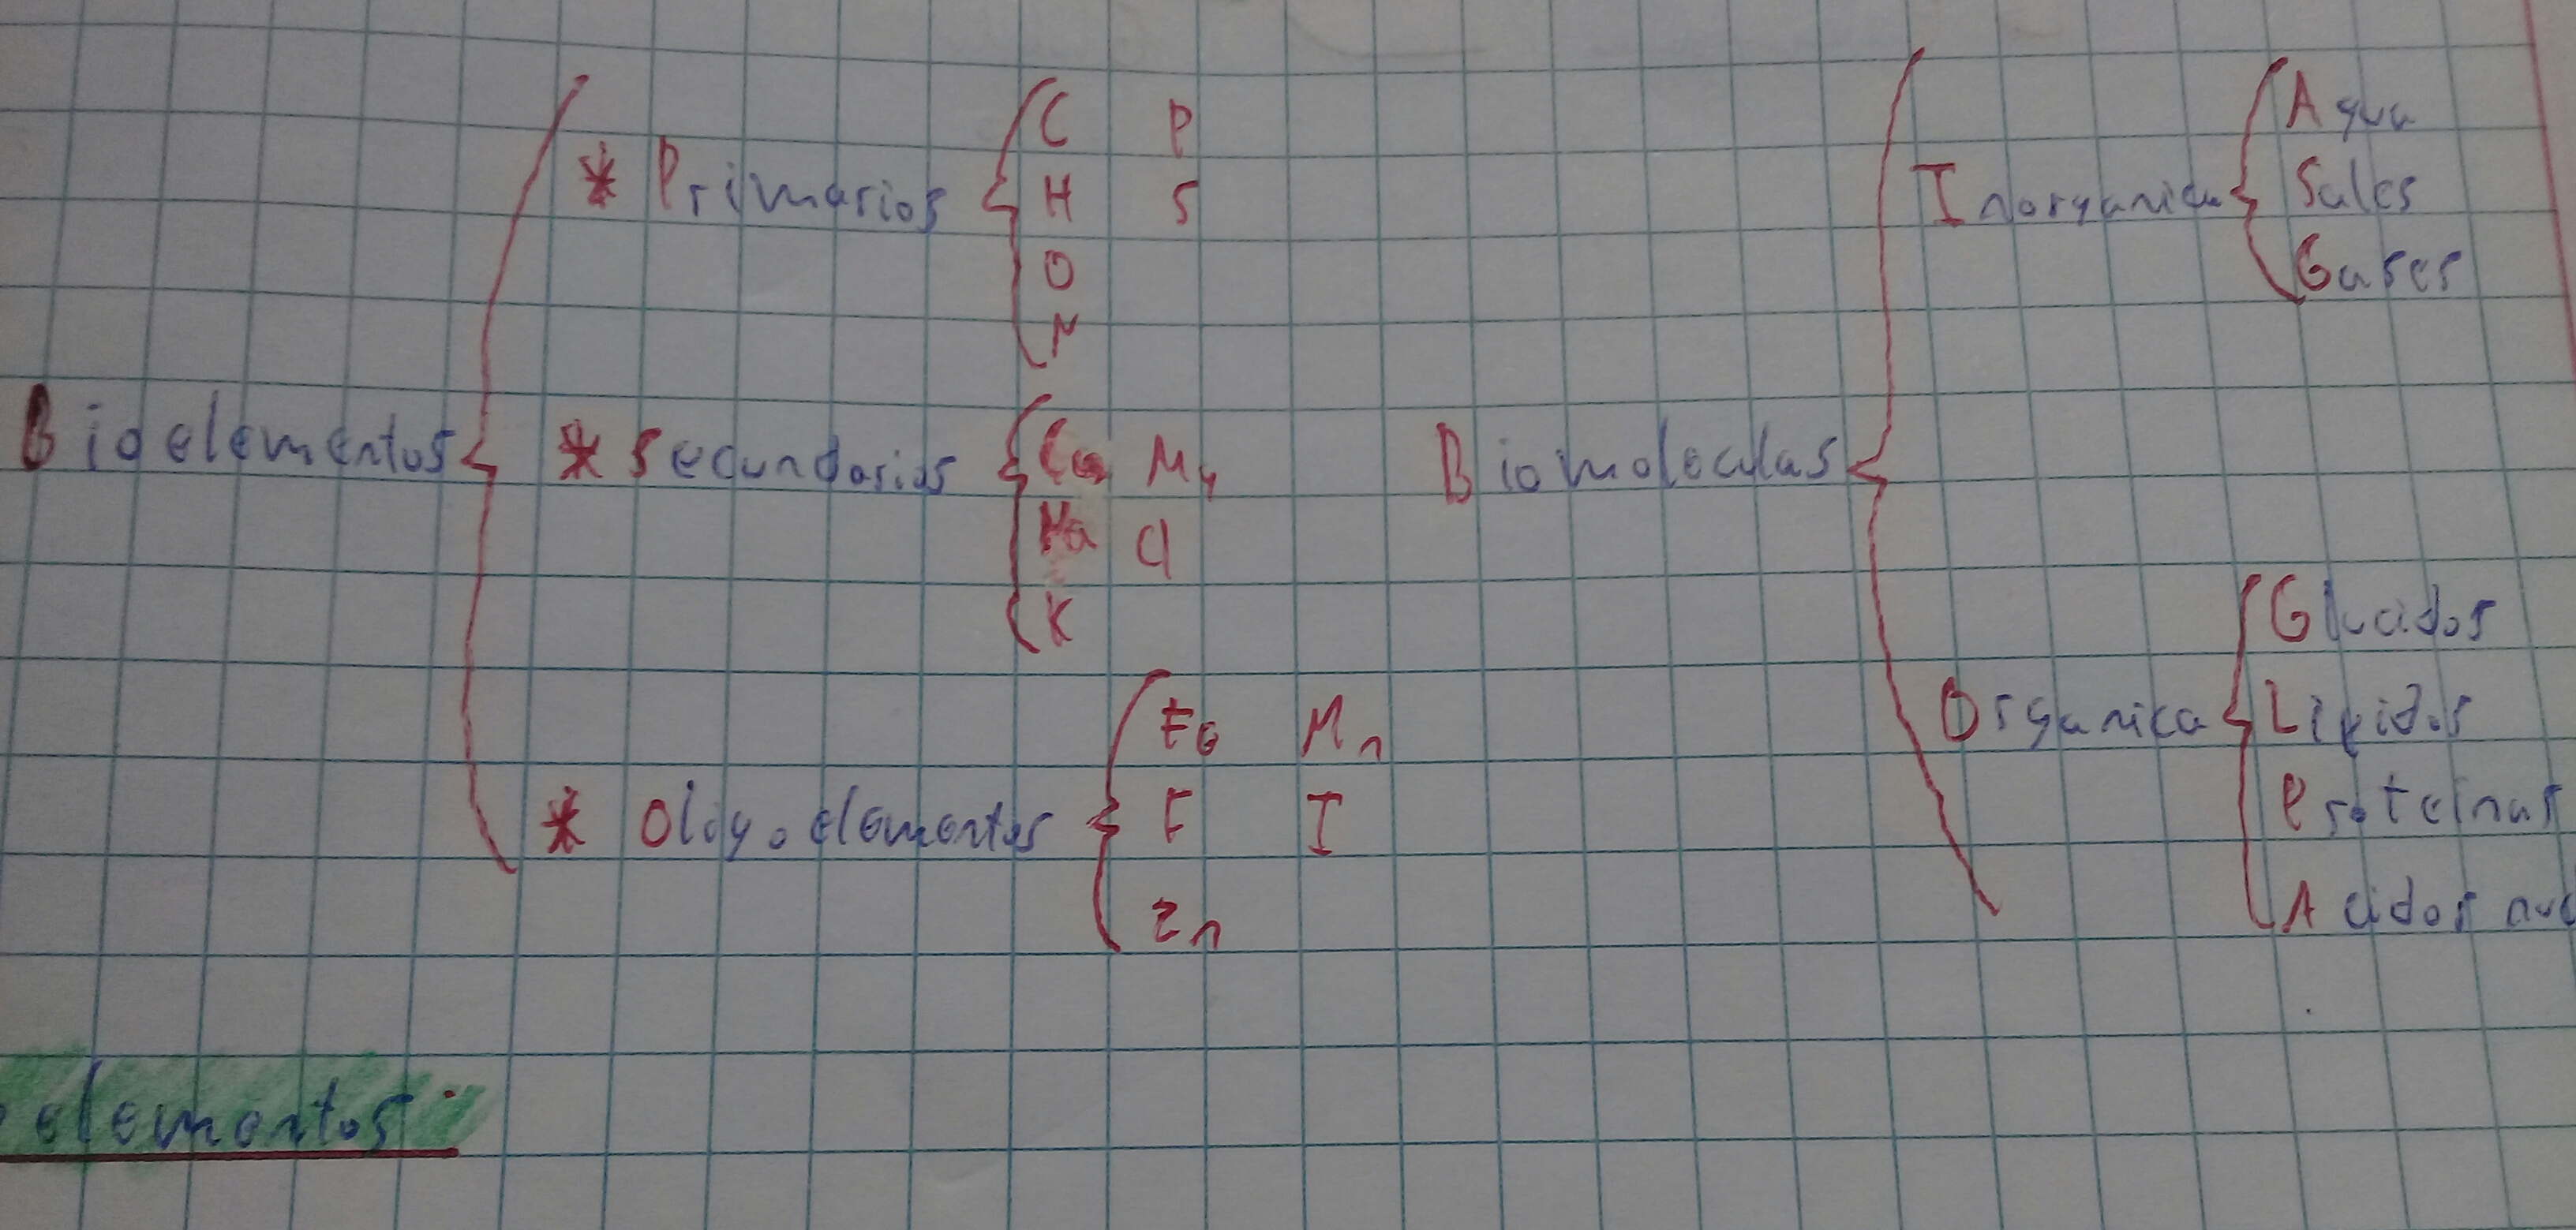 Bioelementos
* Primarios
C P
H S
O
N
* Secundarios
Ca Mg
Na Cl
K
* Oligoelementos
Fe Mn
F I
Zn
Biomoleculas
Inorganica
Agua
Sales
Gases
Organica
Glucidos
Lipidos
Proteinas
Acidos
elementos: